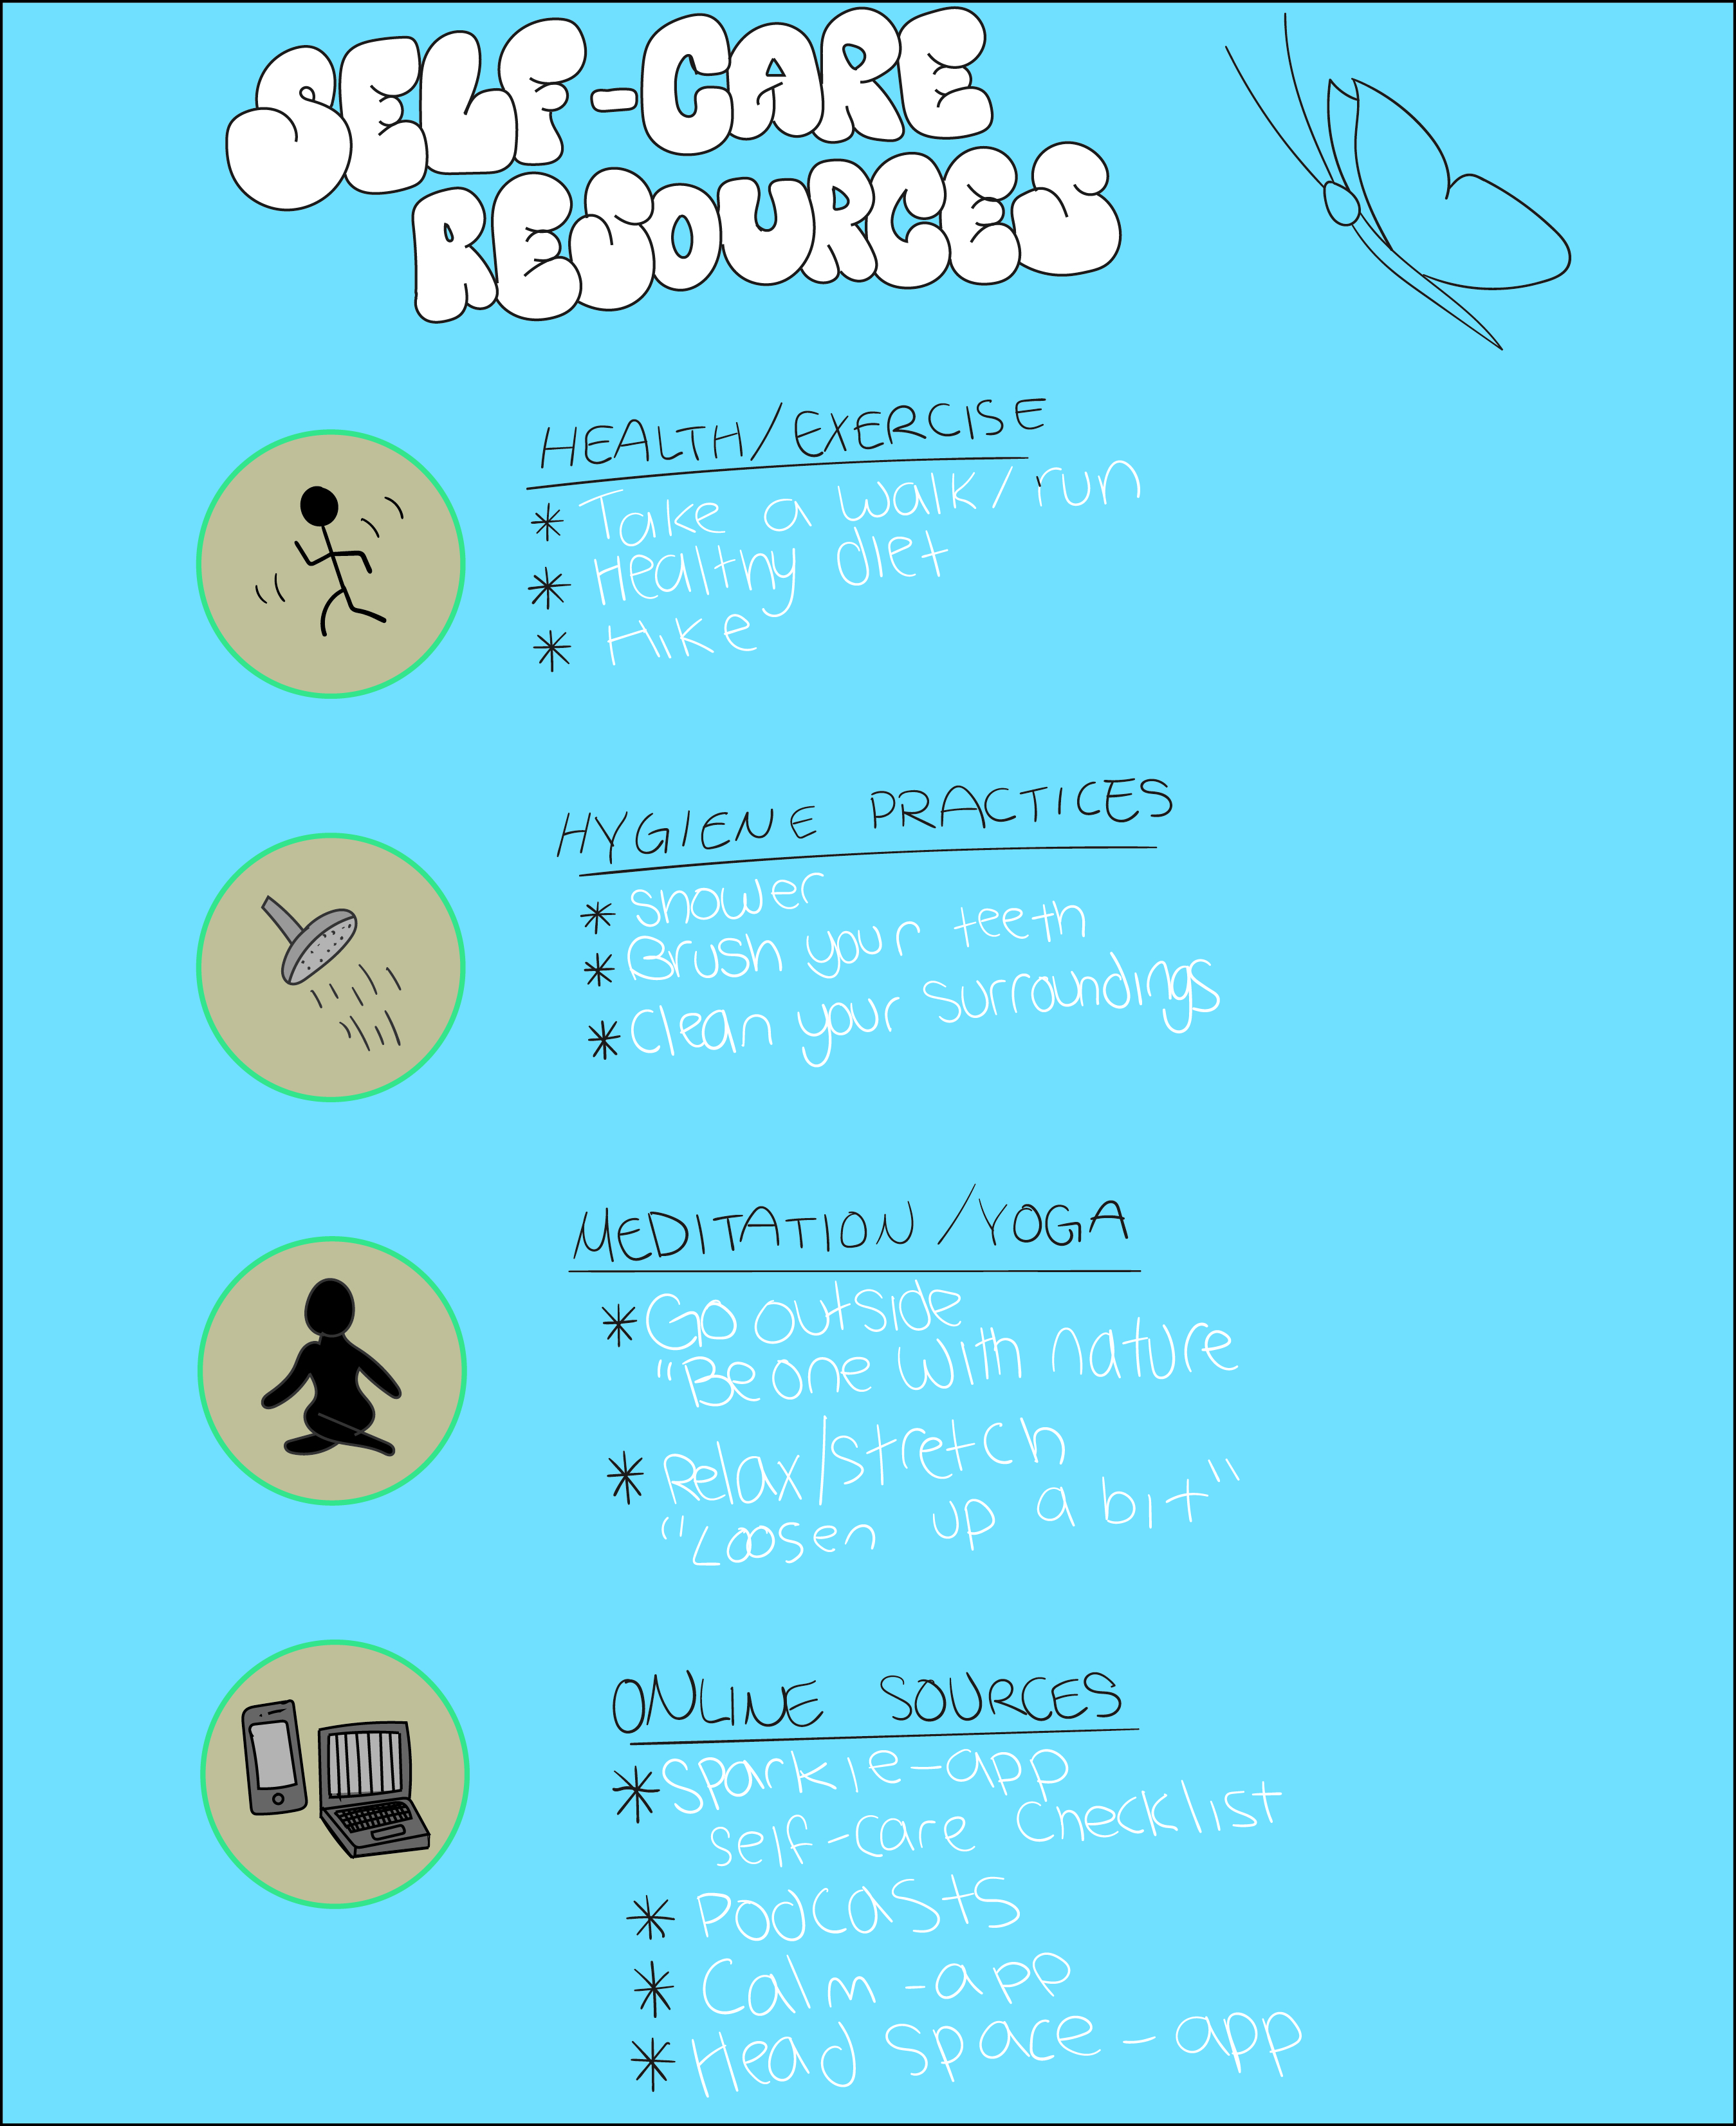 SELF-CARE
RESOURCES
HEALTH/EXERCISE
* Take a walk/run
* Healthy diet
* Hike
HYGIENE PRACTICES
* shower
* Brush your teeth
* Clean your surroundings
MEDITATION/YOGA
* Go outside
"Be one with nature
* Relax/stretch
"Loosen up a bit"
ONLINE SOURCES
* Sparkle-app
self-care checklist
* Podcasts
* Calm-app
* Head space-app